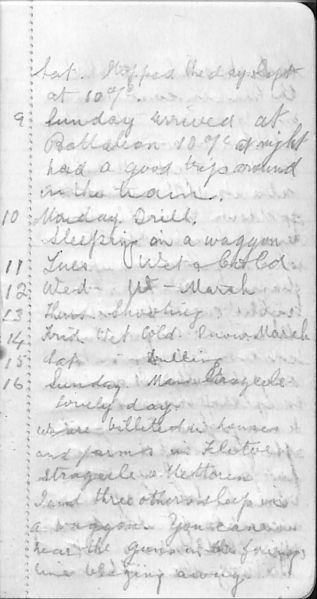 Sat. Stopped the day & Slept
at 10 o/c
9 Sunday arrived at
Battalion 10 o/c at night
had a good trip around
in the train.
10 Monday Drill.
Sleeping in a waggon
11 Tues. Wet & Cold
12 Wed - - March
13 Thurs Shooting
14 Frid Wet Cold Snow March
15 Sat. Drilling
16 Sunday Strazeele
lovely day.
We are billeted in houses
and farms in Fletre
Strazeele & Metteren
I and three others sleep in
a waggon. You can
hear the guns in the firing
line banging away